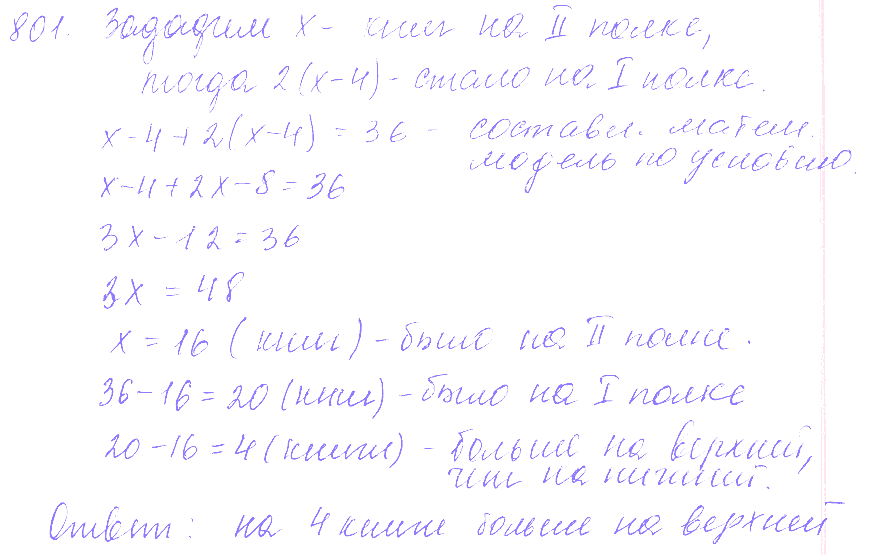 801. Зададим x - книг на II полке,
тогда 2(x-4) - стало на I полке.
x-4+2(x-4) = 36 - составл. матем.
модель по условию.
x-4+2x-8=36
3x-12=36
3x = 48
x = 16 (книг) - было на II полке.
36-16=20 (книг) - было на I полке
20-16=4 (книги) - больше на верхней,
чем на нижней.
Ответ: на 4 книги больше на верхней